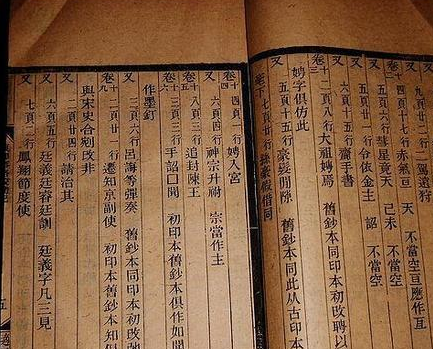 又 九頁二行 二駕遊狩
卷十二 四頁十行 赤氣亘 天 不當空亘應作亙
又 五頁十六行 彗星竟天 己未 不當空
又 六頁十五行 令依金主 詔 不當空
又 六頁十五行 齋手書
卷十三 十二頁八行 大祖娉焉 舊鈔本同印本初改聘以
娉字俱仿此
五頁十五行 豪髮
七頁廿行 豪假借同 舊鈔本同此从古印本
卷十四 四頁一行 娉入宮
又 六頁四行 神宗升祔 宗當作主
卷十五 八頁三行 追封陳王
卷十六 三頁三行 手詔曰閱 初印本舊鈔本俱作如
作墨釘
又 三頁六行 呂誨等彈奏 舊鈔本同印本初改
卷十九 二頁廿一行 遷知京副使 初印本舊鈔本知俱
與宋史合剜改非
又 二頁四行 請治其
又 六頁六行 廷義廷睿廷訓 廷義字凡三見
又 七頁二行 鳳翔節度使
五